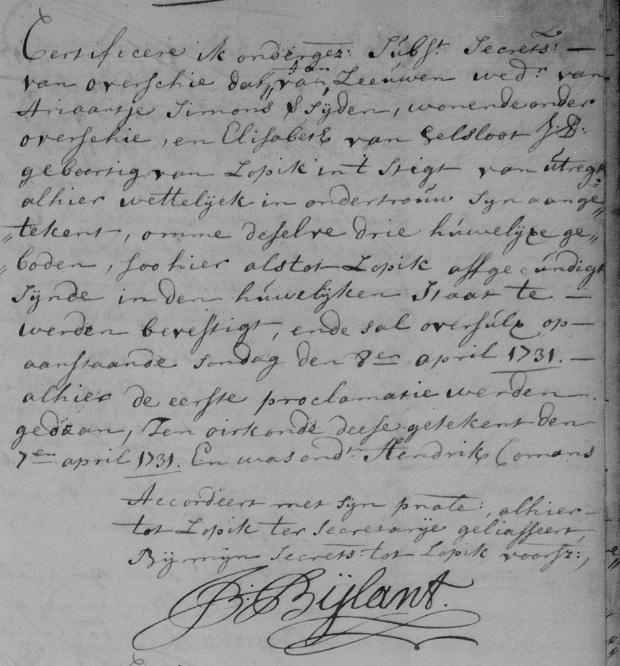 Certificere ik ondergez: Subst Secrets: —
van overschie dat Jan van Leeuwen wedr van
Ariaantje Simons Sijden, wonende onder
overschie, en Elisabeth van Gelsloot J:D:
geboortig van Lopik in t Stigt van Utregt
alhier wettelijck in ondertrouw sijn aange„
„tekent, omme deselve drie huwelijxe ge„
„boden, soo hier als tot Lopik affgecundigt
sijnde in den huwelijken Staat te —
werden bevestigt, ende sal oversulx op —
aanstaande sondag den 8en april 1731. —
alhier de eerste proclamatie werden
gedaan, Ten oirkonde deese getekent den
7en april 1731. En was ondt Hendrik Comans
Accordeert met sijn prnte:, alhier —
tot Lopik ter Secretarije geliasseert,
Bij mijn Secrets: tot Lopik voorsz:,
B: Bijlant.